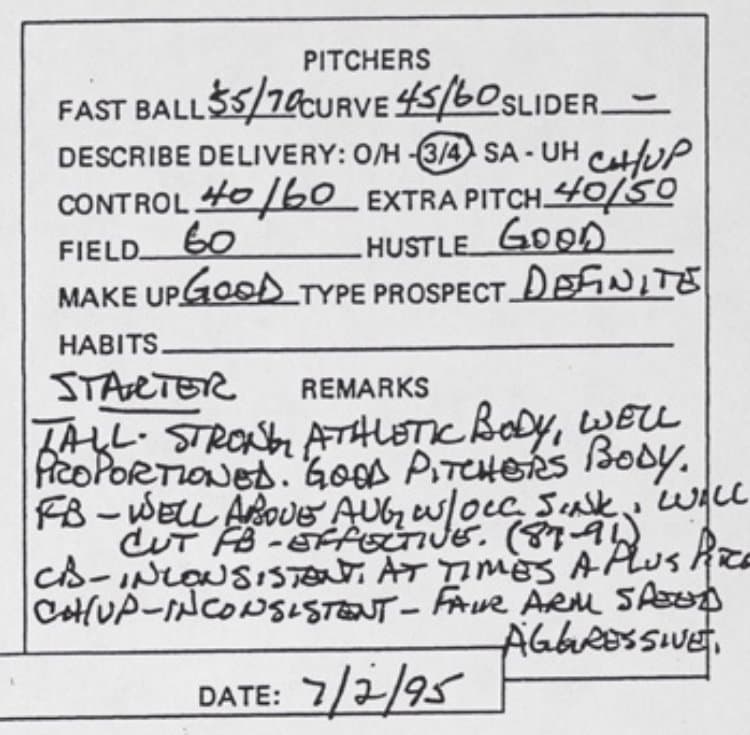 PITCHERS
FAST BALL 55/70 CURVE 45/60 SLIDER –
DESCRIBE DELIVERY: O/H - 3/4 - SA - UH CH/UP
CONTROL 40/60 EXTRA PITCH 40/50
FIELD 60 HUSTLE GOOD
MAKE UP GOOD TYPE PROSPECT DEFINITE
HABITS
STARTER REMARKS
TALL. STRONG, ATHLETIC BODY, WELL
PROPORTIONED. GOOD PITCHERS BODY.
FB – WELL ABOVE AVG W/OCC SINK. WILL
CUT FB – EFFECTIVE. (87-91)
CB – INCONSISTENT. AT TIMES A PLUS PITC
CH/UP – INCONSISTENT – FAIR ARM SPEED
AGGRESSIVE.
DATE: 7/2/95